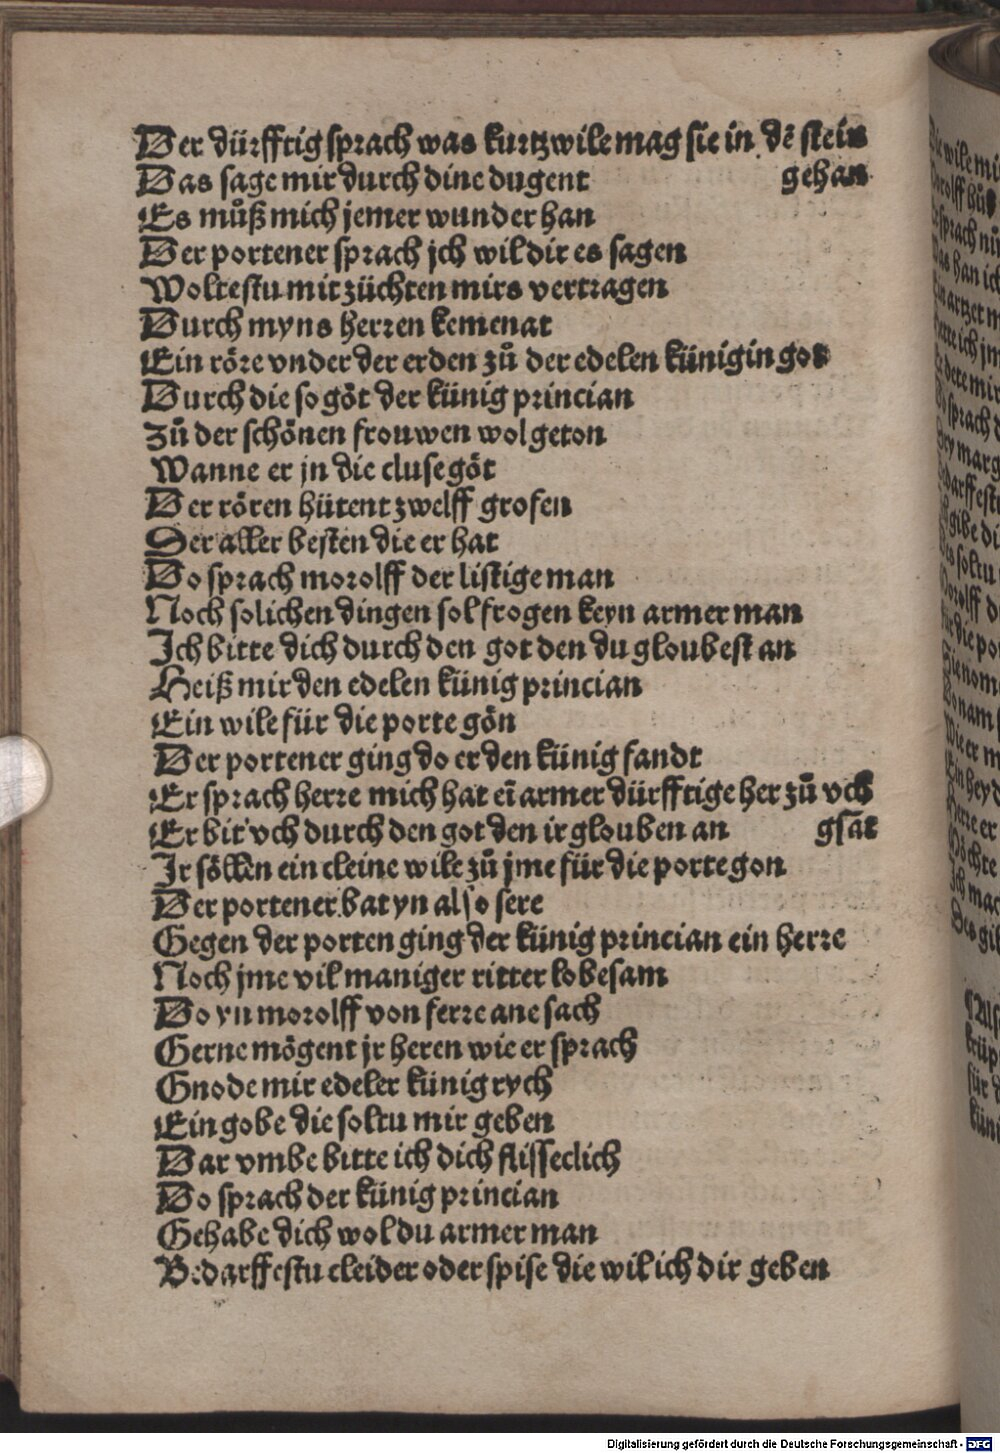 Der dürfftig sprach was kurtzwile mag sie in dē stein
Das sage mir durch dine dugent gehan
Es můß mich jemer wunder han
Der portener sprach jch wil dir es sagen
Woltestu mit züchten mirs vertragen
Durch myns herren kemenat
Ein röre vnder der erden zů der edelen künigin got
Durch die so göt der künig princian
Zů der schönen frouwen wolgeton
Wanne er jn die cluse göt
Der rören hütent zwelff grofen
Der aller besten die er hat
Do sprach morolff der listige man
Noch solichen dingen sol frogen keyn armer man
Ich bitte dich durch den got den du gloubest an
Heiß mir den edelen künig princian
Ein wile für die porte gön
Der portener ging do er den künig fandt
Er sprach herre mich hat eī armer dürfftige her zů vch
Er bit vch durch den got den ir glouben an gsāt
Ir söllen ein cleine wile zů jme für die porte gon
Der portener bat yn also sere
Gegen der porten ging der künig princian ein herre
Noch jme vil maniger ritter lobesam
Do yn morolff von ferre ane sach
Gerne mögent jr heren wie er sprach
Gnode mir edeler künig rych
Ein gobe die soltu mir geben
Dar vmbe bitte ich dich flisseclich
Do sprach der künig princian
Gehabe dich wol du armer man
Bedarffestu cleider oder spise die wil ich dir geben
Digitalisierung gefördert durch die Deutsche Forschungsgemeinschaft - DFG